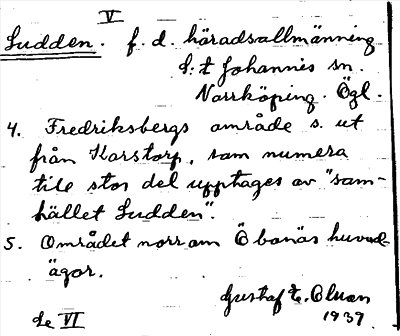 V
Sudden. f. d. häradsallmänning
S:t Johannis sn.
Norrköping. Ögl.
4. Fredriksbergs område s. ut
från Karstorp, som numera
till stor del upptages av "sam-
hället Sudden".
5. Området norr om Öbonäs huvud-
ägor.
Gustaf E. Olson
Se VI
1939